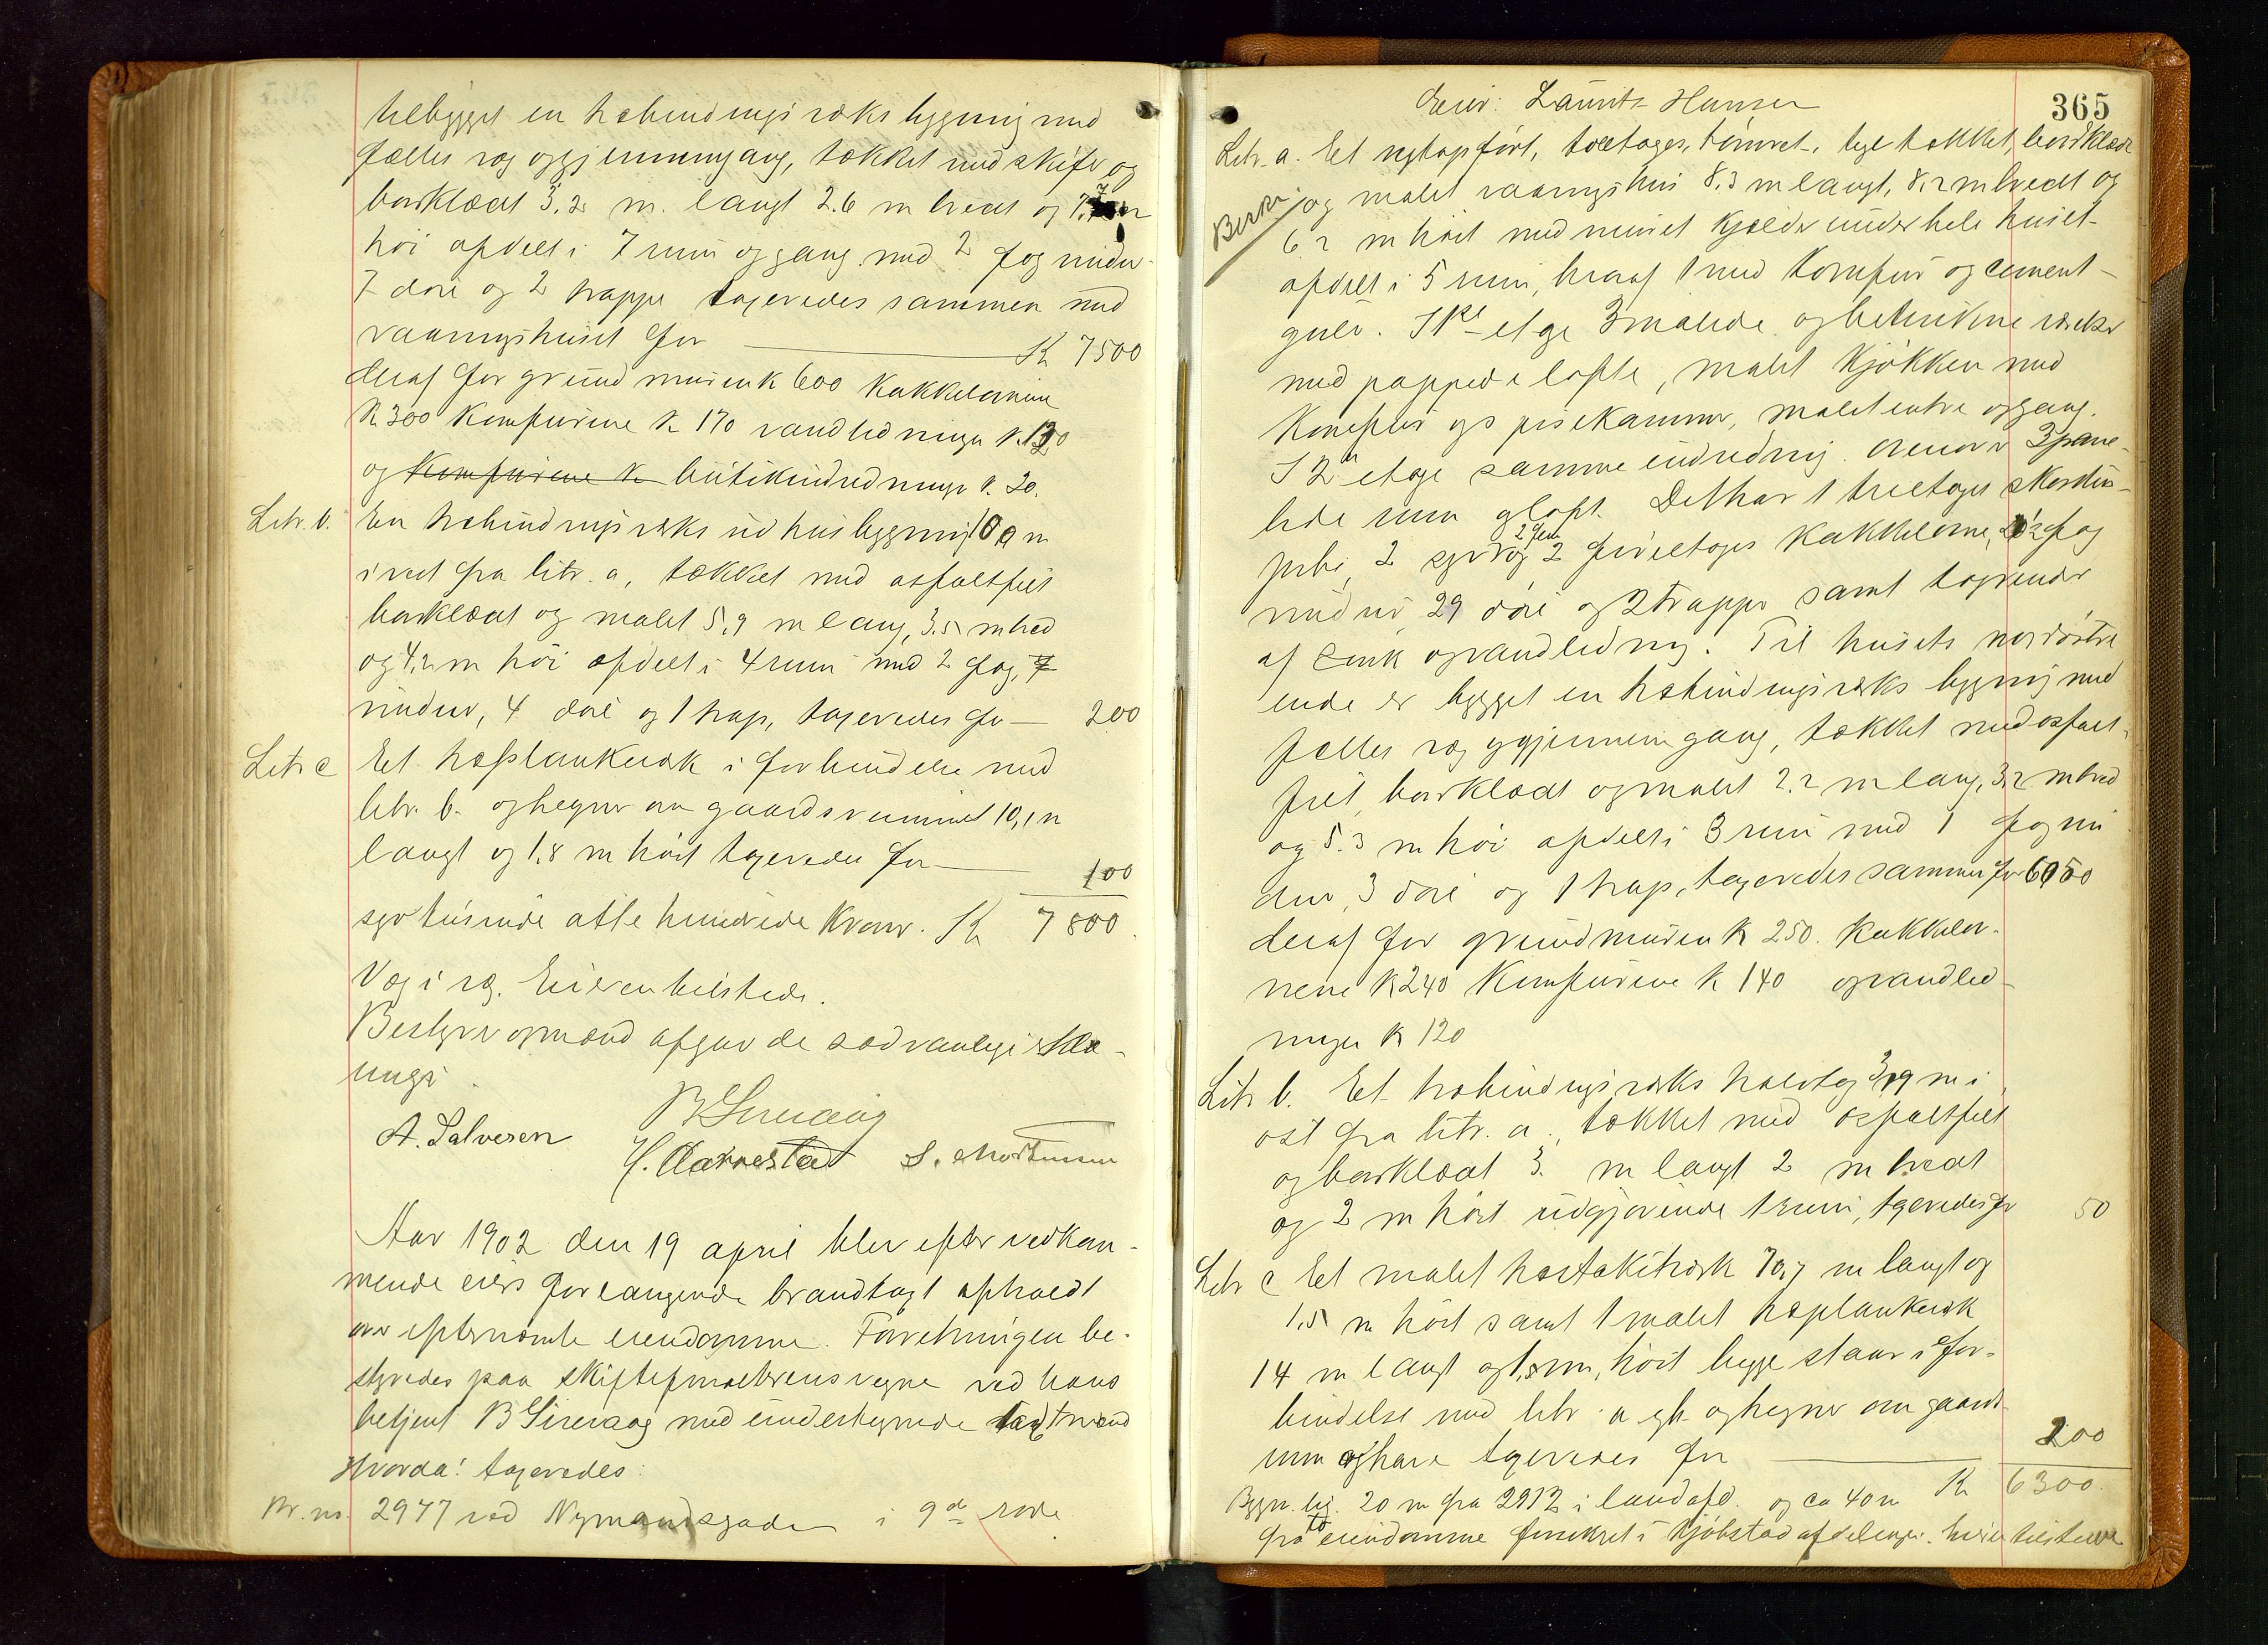 tilbygget en træbindingsværks bygning med
fælles væg og gjennemgang, tækket med skifer og
borklædt 3.2 m. langt 2.6 m bredt og 7.7 m
høi afdelt i 7 rum og gang med 2 fag vindu-
7 døre og 2 trappe taxeredes sammen med
vaaningshuset for K 7500
deraf for grundmuren k 600 Kakkelovnene
K 300 Komfurene K 170 vandledningen K. 120
og Komfurene K butikindredningen K. 30.
Litr. b. En træbindingsværks udhusbygning 10,9 m
i vest fra litr. a, tækket med asfaltfilt
borklædt og malet 5,9 m lang, 3.5 m bred
og 4,2 m høi afdelt i 4 rum med 2 fag
vinduer, 4 døre og 1 trap, taxeredes for — 200
Litr c Et træplankeværk i forbindelse med
litr. b. og hegner om gaardsrummet 10,1 m
langt og 1,8 m høit taxeredes for 100
syv tusinde otte hundrede Kroner. K 7800.
Væg i væg. Eieren tilstede.
Bestyrer og mænd afgav de sædvanlige erklæ-
ringer.
B Sirevaag
A. Salvesen H. Aarrestad S. Mortensen
Aar 1902 den 19 april blev efter vedkom-
mende eiers forlangende brandtaxt afholdt
over efternævnte eiendomme. Forretningen be-
styredes paa skifteforvalterens vegne ved hans
betjent B Sirevaag med undertegnede taxtmænd
Hvorda! taxeredes:
Br. no. 2977 ved Nymandsgaden i 9de rode
365
Eier: Laurits Hansen
Litr. a. Et nytopført, toetages, tømret, tegltækket, bordklædt
Berki
og malet vaaningshus 8.3 m langt, 8.2 m bredt og
6.2 m høit med muret kjælder under hele huset
afdelt i 5 rum, hvoraf 1 med komfur og cement-
gulv. I 1ste etage 3 malede og betrukne værelser
med pappede lofte, malet Kjøkken med
Komfur og spisekammer, malet entre og gang.
I 2den etage samme indredning. Ovenover 3 pane-
lede rum og loft. Det har 1 treetages skorsten-
pibe, 2 og 2 fireetages Kakkelovne, fag
vinduer, 29 døre og 2 trapper samt tagrender
af zink og vandledning. Til husets nordøstre
ende er bygget en træbindingsværks bygning med
fælles væg og gjennemgang, tækket med asfalt-
filt, borklædt og malet 2.2 m lang, 3.2 m bred
og 5.3 m høi afdelt i 3 rum med 1 fag vin
duer, 3 døre og 1 trap, taxeredes sammen for 6050
deraf for grundmuren K 250. Kakkelov-
nene K 240 Komfurene K 140 og vandled-
ningen K 120
Litr b. Et træbindingsværks halvtag 3,9 m i
øst fra litr. a., tækket med asfaltfilt
og borklædt 3. m langt 2 m bredt
og 2 m høit udgjørende 1 rum, taxeredes for 50
Litr c Et malet træstakitværk 70,7 m langt og
1.5 m høit samt 1 malet træplankeværk
14 m langt og 1,8 m, høit begge staar i for-
bindelse med litr a og b og hegner om gaards-
rum og have taxeredes for 200
K 6300.
Bygn. lig. 20 m fra 2912 i landafd. og ca 40 m
fra to eiendomme forsikret i Kjøbstadafdelingen. Eieren tilstede